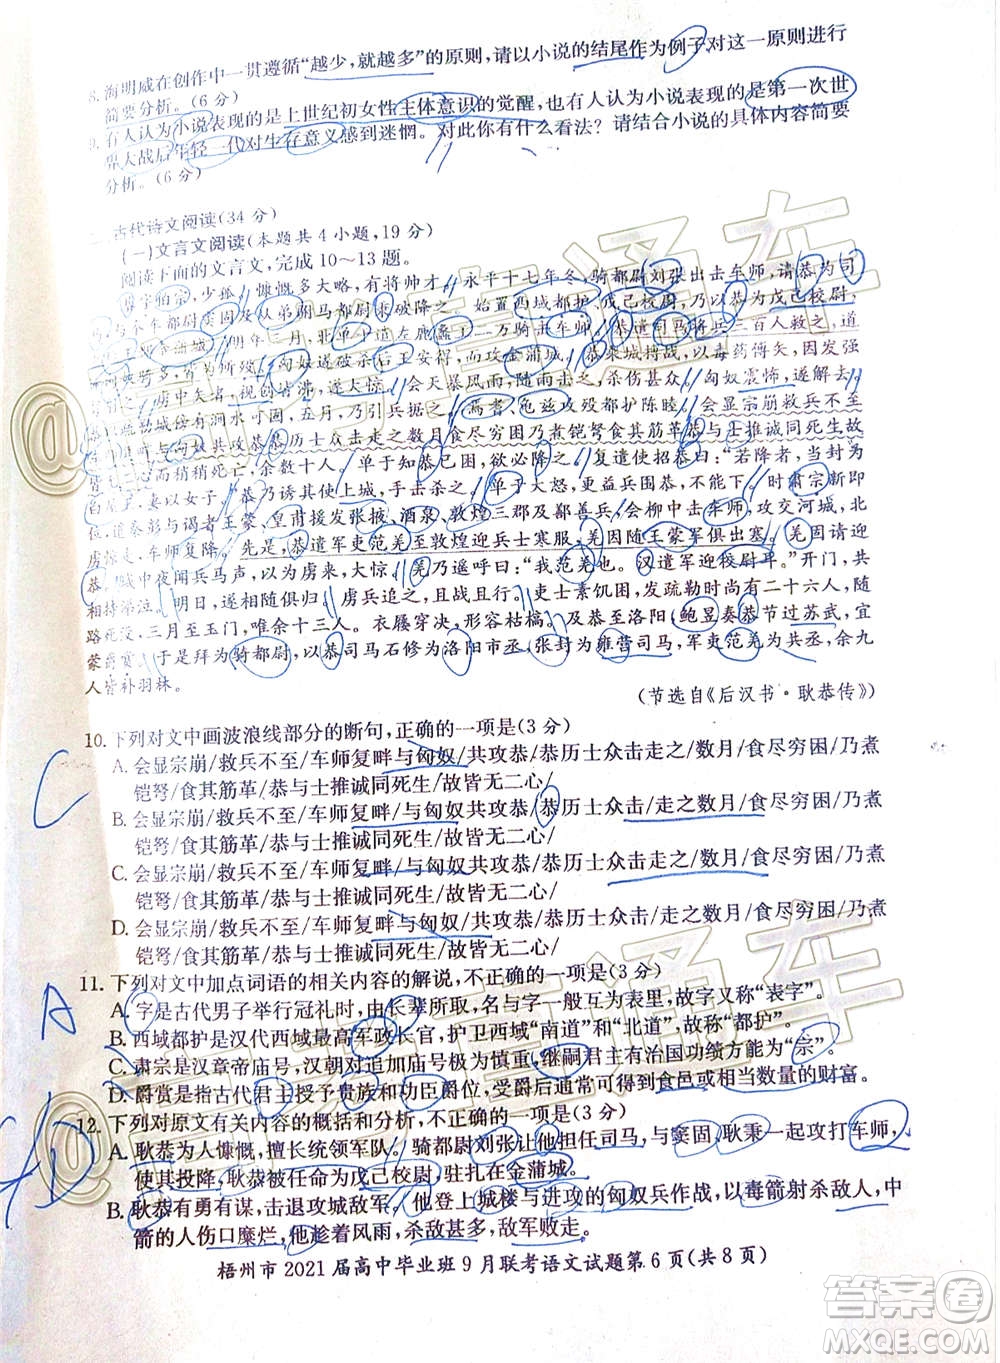 8. 海明威在创作中一贯遵循“越少,就越多”的原则,请以小说的结尾作为例子对这一原则进行
简要分析。(6分)
9. 有人认为小说表现的是上世纪初女性主体意识的觉醒,也有人认为小说表现的是第一次世
界大战后年轻一代对生存意义感到迷惘。对此你有什么看法?请结合小说的具体内容简要
分析。(6分)
二、古代诗文阅读(34分)
(一)文言文阅读(本题共4小题,19分)
阅读下面的文言文,完成10~13题。
字伯宗,少孤。慷慨多大略,有将帅才。永平十七年冬,骑都尉刘张出击车师,请恭为司
马,与奉车都尉窦固及从弟驸马都尉秉破降之。始置西城都护、戊己校尉,乃以恭为戊己校尉,屯
金蒲城。明年三月,北单于遣左鹿蠡王二万骑击车师。恭遣司马将兵三百人救之,道
骑多,匈奴遂破杀后王安得,而攻金蒲城。恭乘城搏战,以毒药傅矢,因发强
虏中矢者,视创皆沸,遂大惊。会天暴风雨,随雨击之,杀伤甚众。匈奴震怖,
城傍有涧水可固,五月,乃引兵据之。焉耆、龟兹攻都护陈睦。会显宗崩救兵不至车师复
畔与匈奴共攻恭恭历士众击走之数月食尽穷困乃煮铠弩食其筋革恭与士推诚同死生故
皆无二心而稍稍死亡,余数十人。单于知恭已困,欲必降之。复遣使招恭曰:“若降者,当封为
白屋王,妻以女子。”恭乃诱其使上城,手击杀之。单于大怒,更益兵围恭,不能下。时肃宗新即
位,道秦彭与谒者王蒙、皇甫援发张掖、酒泉、敦煌三郡及鄯善兵,会柳中击车师,攻交河城,
虏惊走,车师复降。先是,恭遣军吏范羌至敦煌迎兵士寒服,羌因随王蒙军俱出塞。羌固请迎
恭。城中夜闻兵马声,以为虏来,大惊。羌乃遥呼曰:“我范羌也。汉遣军迎校尉耳。”开门,共
相持涕泣。明日,遂相随俱归。虏兵追之,且战且行。吏士素饥困,发疏勒时尚有二十六人,随
路死没,三月至玉门,唯余十三人。衣屦穿决,形容枯槁。及恭至洛阳,鲍昱奏恭节过苏武,宜
蒙爵赏。于是拜为骑都尉,以恭司马石修为洛阳市丞,张封为雍营司马,军吏范羌为共丞,余九
人皆补羽林。
(节选自《后汉书·耿恭传》)
10. 下列对文中画波浪线部分的断句,正确的一项是(3分)
A. 会显宗崩/救兵不至/车师复畔与匈奴/共攻恭/恭历士众击走之/数月/食尽穷困/乃煮
铠弩/食其筋革/恭与士推诚同死生/故皆无二心/
B. 会显宗崩/救兵不至/车师复畔/与匈奴共攻恭/恭历士众击/走之数月/食尽穷困/乃煮
铠弩/食其筋革/恭与士推诚/同死生/故皆无二心/
C. 会显宗崩/救兵不至/车师复畔/与匈奴共攻恭/恭历士众击走之/数月/食尽穷困/乃煮
铠弩/食其筋革/恭与士推诚同死生/故皆无二心/
D. 会显宗崩/救兵不至/车师复畔与匈奴/共攻恭/恭历士众击/走之数月/食尽穷困/乃煮
铠弩/食其筋革/恭与士推诚/同死生/故皆无二心/
11. 下列对文中加点词语的相关内容的解说,不正确的一项是(3分)
A. 字是古代男子举行冠礼时,由长辈所取,名与字一般互为表里,故字又称“表字”。
B. 西域都护是汉代西域最高军政长官,护卫西域“南道”和“北道”,故称“都护”。
C. 肃宗是汉章帝庙号,汉朝对追加庙号极为慎重,继嗣君主有治国功绩方能为“宗”。
D. 爵赏是指古代君主对贵族和功臣爵位、爵号进行赏赐,还赐予食邑或相当数量的财富。
12. 下列对原文有关内容的概括和分析,不正确的一项是(3分)
A. 耿恭为人慷慨,擅长统领军队。骑都尉刘张让他担任司马,与窦固、耿秉一起攻打车师,
使其投降,耿恭被任命为戊己校尉,驻扎在金蒲城。
B. 耿恭有勇有谋,成功击退攻城敌军。他登上城楼与进攻的匈奴兵作战,以毒箭射杀敌人,中
箭的人伤口糜烂,他趁着风雨,杀敌甚多,敌军败走。
梧州市2021届高中毕业班9月联考语文试题第6页(共8页)
C
A
D
@高考直通车
@高考直通车
答案圈
MXQE.COM